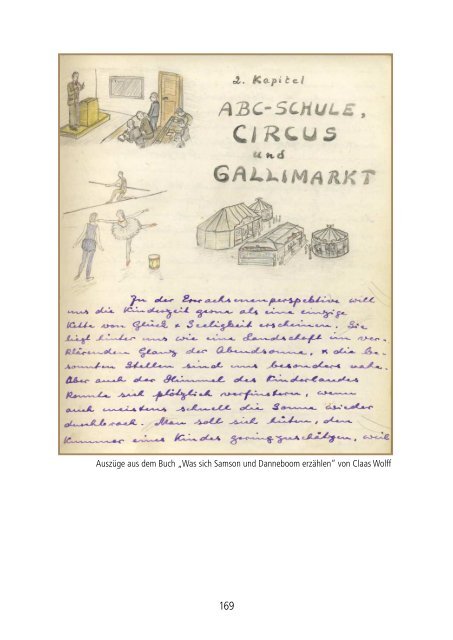 2. Kapitel
ABC-SCHULE,
CIRCUS
und
GALLIMARKT
In der Erwachsenenperspektive will
uns die Kinderzeit gerne als eine einzige
Kette von Glück & Seeligkeit erscheinen. Sie
liegt hinter uns wie eine Landschaft im ver-
klärenden Glanz der Abendsonne, & die be-
sonnten Stellen sind uns besonders nahe.
Aber auch der Himmel des Kinderlandes
konnte sich plötzlich verfinstern, wenn
auch meistens schnell die Sonne wieder
durchbrach. Man soll sich hüten, den
Kummer eines Kindes geringzuschätzen, weil
Auszüge aus dem Buch „Was sich Samson und Danneboom erzählen“ von Claas Wolff
169